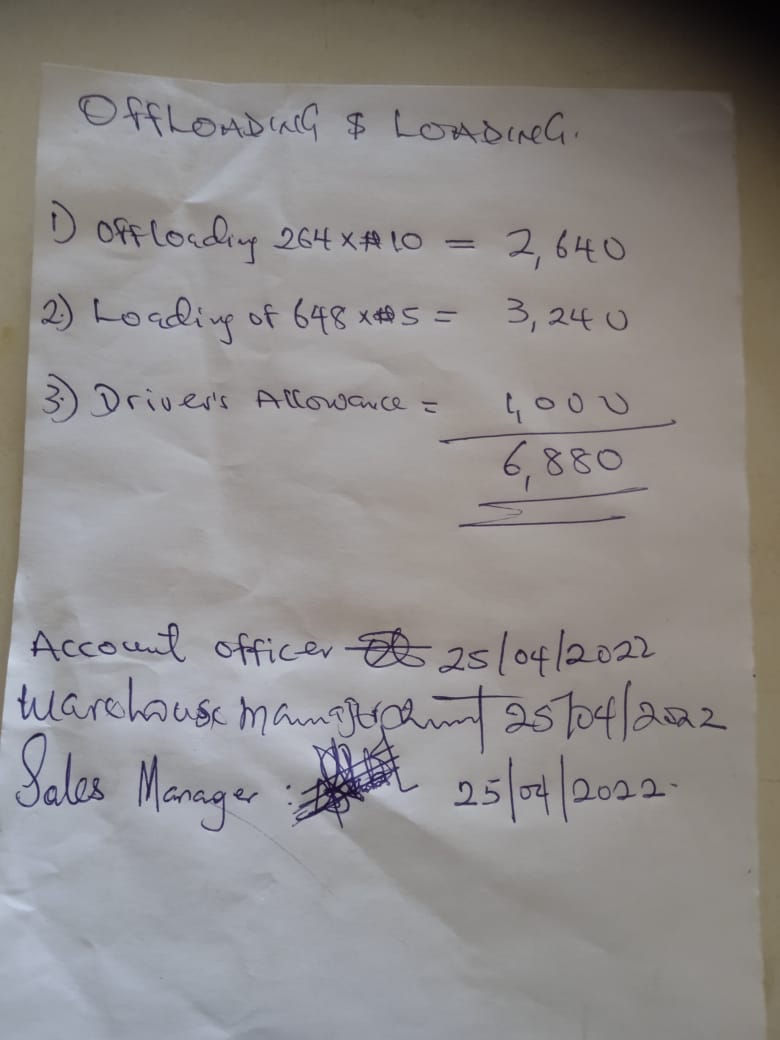 OFFLOADING & LOADING.
1) Offloading 264 x ₦10 = 2,640
2) Loading of 648 x ₦5 = 3,240
3) Driver's Allowance = 1,000
6,880
Account officer 25/04/2022
Warehouse manager 25/04/2022
Sales Manager : 25/04/2022.